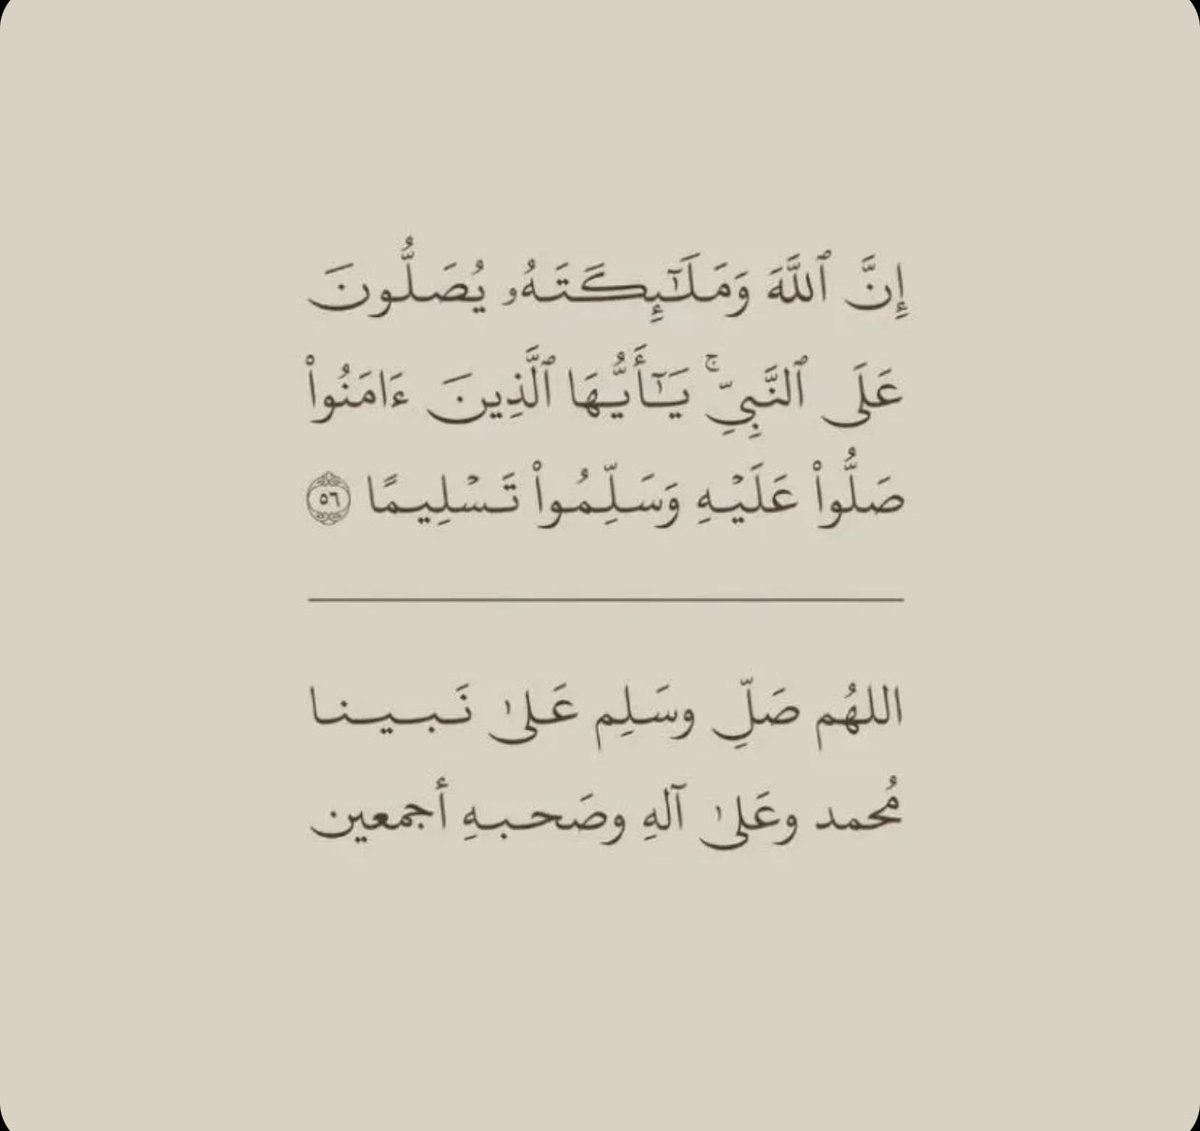 إِنَّ ٱللَّهَ وَمَلَـٰٓئِكَتَهُۥ يُصَلُّونَ
عَلَى ٱلنَّبِىِّ ۚ يَـٰٓأَيُّهَا ٱلَّذِينَ ءَامَنُوا۟
صَلُّوا۟ عَلَيْهِ وَسَلِّمُوا۟ تَسْلِيمًا ٥٦
اللهُم صَلِّ وسَلِم عَلىٰ نَبينا
مُحمد وعَلىٰ آلهِ وصَحبهِ أجمعين